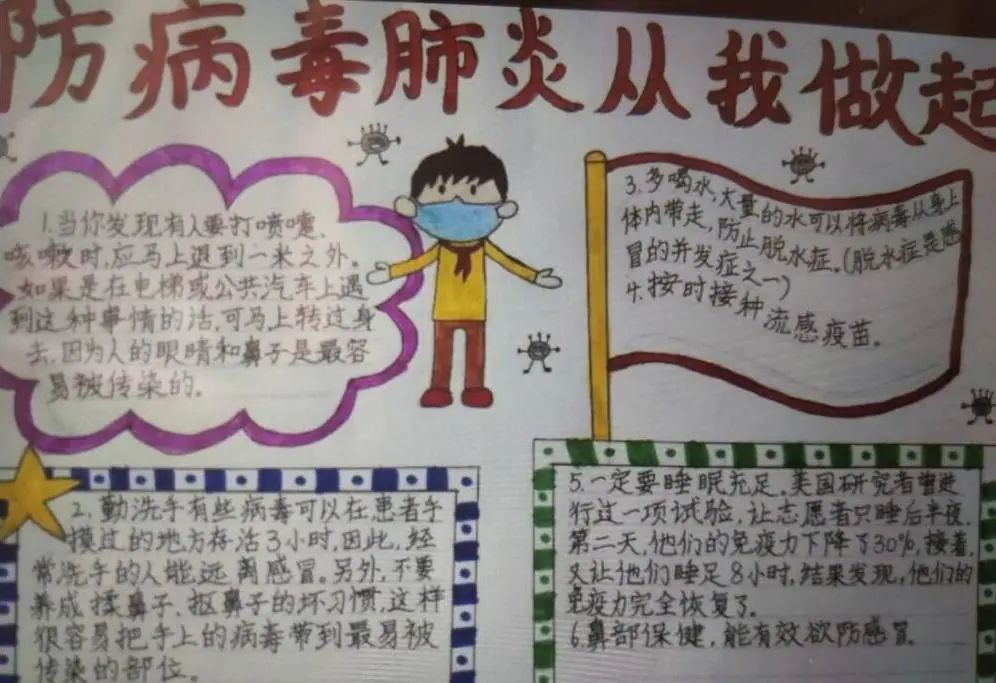 防病毒肺炎从我做起
1.当你发现有人要打喷嚏、
咳嗽时,应马上退到一米之外。
如果是在电梯或公共汽车上遇
到这种事情的话,可马上转过身
去,因为人的眼睛和鼻子是最容
易被传染的。
3.多喝水,大量的水可以将病毒从身上
体内带走,防止脱水症。(脱水症是感
冒的并发症之一)
4.按时接种流感疫苗。
2.勤洗手有些病毒可以在患者手
摸过的地方存活3小时,因此,经
常洗手的人能远离感冒。另外,不要
养成揉鼻子、抠鼻子的坏习惯,这样
很容易把手上的病毒带到最易被
传染的部位。
5.一定要睡眠充足。美国研究者曾进
行过一项试验,让志愿者只睡后半夜,
第二天,他们的免疫力下降了30%,接着,
又让他们睡足8小时,结果发现,他们的
免疫力完全恢复了。
6.鼻部保健,能有效欲防感冒。